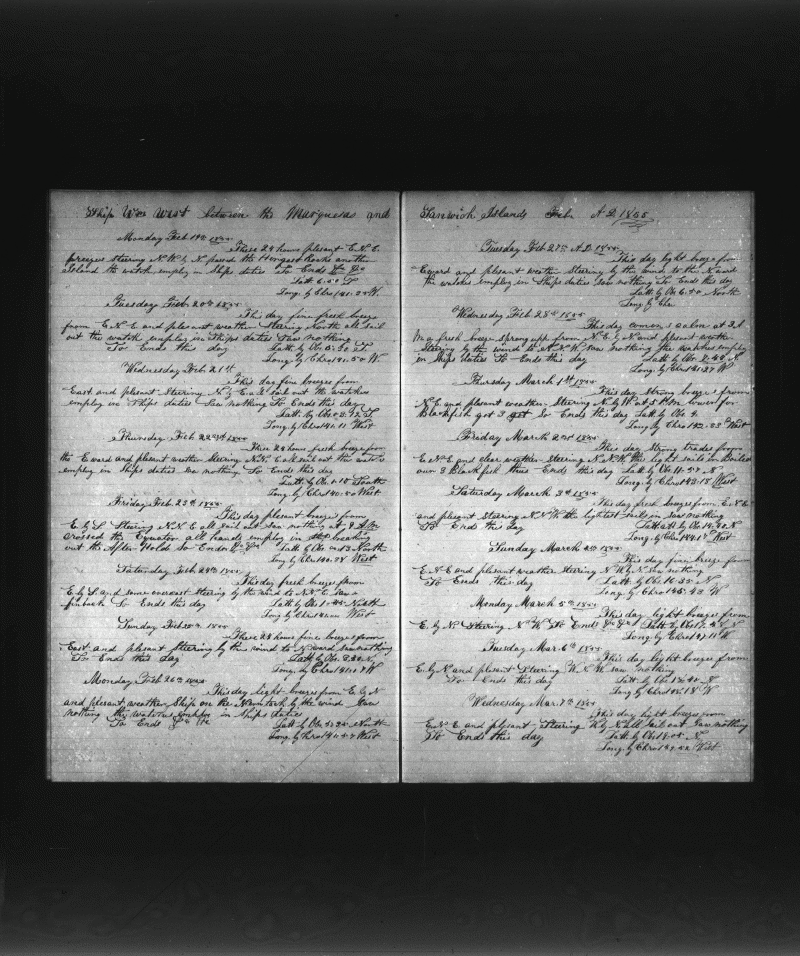 Ship Wm Wirt between the Marquesas and
Monday Feb 19th 1855
These 24 hours pleasent E.N.E
breezes steering N.W by N. passed the Rocks another
Island the watch employ in Ships duties So Ends
Latt. 6.50 S
Long. by Chro 141. W.
Tuesday Feb 20th 1855
This day fine fresh breeze
from E.N.E and pleasent weather Steering North all sail
out the watch employ in ships duties saw nothing
So Ends this day Latt. by Obs 5. S
Long. by Chro 141.50 W
Wednesday Feb 21st
This day fine breezes from
East and pleasent Steering N. by E all sail out the watches
employ in Ships duties Saw nothing So Ends this day
Latt. by Obs 3.12 S
Long by Chro 141.11 West
Thursday Feb 22nd 1855
These 24 hours fresh breeze from
the Eward and pleasent weather Steering all sail out the watches
employ in Ships duties saw nothing So Ends this day
Latt by Obs 1.10 South
Long by Chro 140.50 West
Friday Feb 23rd 1855
This day pleasent breeze from
E by S. Steering N.N.E all sail out saw nothing at 9 A.M
crossed the Equator all hands employ in breaking
out the After Hold So Ends Latt by Obs 00.13 North
Long by Chro 140.28 West
Saturday Feb 24th 1855
This day fresh breeze from
E by S. and some overcast steering by the wind to N.N.E. Saw a
finback So Ends this day Latt by Obs 1.45 North
Long by Chro 141.00 West
Sunday Feb 25th 1855
These 24 hours fine breezes from
East and pleasent Steering by the wind to N.ward saw nothing
So Ends this day Latt by Obs 3.30 N.
Long by Chro 141.17 W
Monday Feb 26th 1855
This day light breezes from E by N
and pleasent weather Ships on the N.ern tack by the wind Saw
nothing the watches employ in Ships duties
So Ends Latt by Obs 5.25 North
Long by Chro 141. West
Sanwich Islands Feb. A.D. 1855
Tuesday Feb 27th A.D. 1855
This day light breeze from
Eward and pleasent weather Steering by the wind to the N.ward
the watches employ in Ships duties Saw nothing So Ends this day
Latt by Obs 6.50 North
Long by Chro
Wednesday Feb 28th 1855
This day commences calm at 3 A.
M a fresh breeze sprang up from N.E. by N and pleasent weather
Steering by the wind to N.N.W saw nothing the watches employ
in Ships duties So Ends this day Latt by Obs N
Long. by Chro 141.27 W
Thursday March 1st 1855
This day Strong breezes from
N.E and pleasent weather Steering N. by W at 5 P.M. lower for
Blackfish got 3 So Ends this day Latt by Obs
Long by Chro 142.25 West
Friday March 2nd 1855
This day Strong trades from
E.N.E and clear weather Steering N.N.W the light sails in Boiled
our 3 Blackfish thus Ends this day Latt by Obs 11.57 N
Long by Chro 143.18 West
Saturday March 3rd 1855
This day fresh breezes from E.N.E
and pleasent steering N.N.W the lightest sails in saw nothing
So Ends this day Latt by Obs 14.30 N
Long. by Chro 144.15 West
Sunday March 4th 1855
This day fine breeze from
E.N.E and pleasent weather steering N.W by N saw nothing
So Ends this day Latt by Obs 16.35 N
Long. by Chro 145.43 W
Monday March 5th 1855
This day light breeze from
E. by N Steering N.W So Ends Latt by Obs 17. N
Long. by Chro 147.11 W
Tuesday Mar. 6th 1855
This day light breeze from
E. by N and pleasent Steering saw nothing
So Ends this day Latt by Obs N
Long by Chro 148.18 W
Wednesday Mar. 7th 1855
This day light breeze from
E.N.E and pleasent Steering all sail out saw nothing
So Ends this day Latt by Obs 19.05 N
Long by Chro West